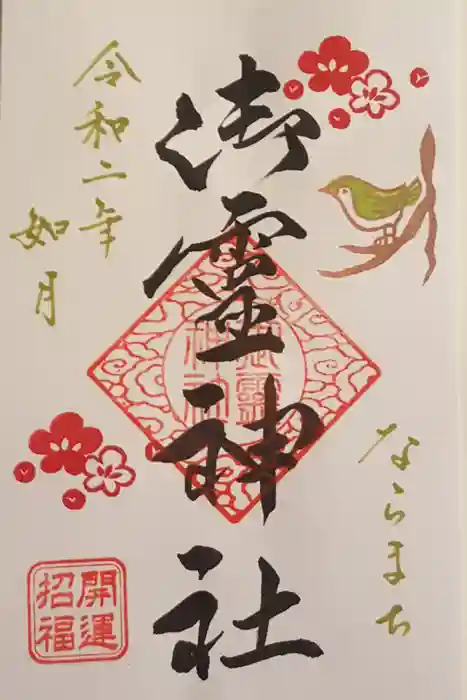 ならまち
御霊神社
令和二年
如月
開運
招福